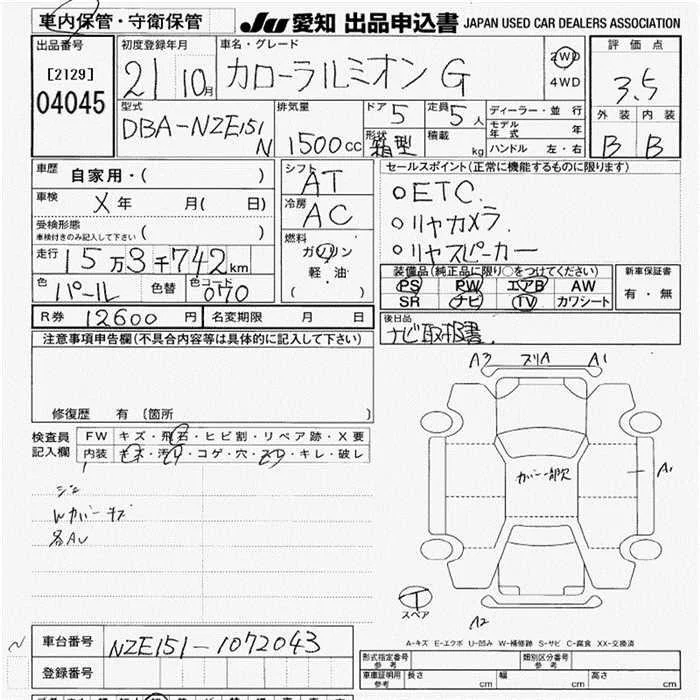 車内保管・守衛保管
JU 愛知 出品申込書 JAPAN USED CAR DEALERS ASSOCIATION
出品番号
[2129]
04045
初度登録年月
21 10月
車名・グレード
カローラルミオン G
2WD
4WD
評価点
3.5
外装 内装
B B
型式
DBA-NZE151N
排気量
1500cc
ドア 5
定員 5人
形状 箱型
積載 kg
ディーラー・並行
モデル年式 年
ハンドル 左・右
車歴 自家用・( )
車検 X年 月( 日)
受検形態
車検付きのみ記入して下さい ( )
走行 15万3千742km
色 パール 色替 色コード 070
シフト AT
冷房 AC
燃料
ガソリン
軽・油
( )
セールスポイント(正常に機能するものに限ります)
○ETC.
○リヤカメラ.
○リヤスピーカー
装備品(純正品に限り○をつけてください)
PS PW エアB AW
SR ナビ TV カワシート
新車保証書
有・無
R券 12600円 名変期限 月 日
後日品
ナビ取説書.
注意事項申告欄(不具合内容等は具体的に記入して下さい)
修復歴 有〔箇所 〕
検査員記入欄
FW キズ・飛石・ヒビ割・リペア跡・X要
内装 キズ・汚れ・コゲ・穴・スレ・キレ・破レ
Wカバーキズ
A3 スリA A1
カバー一部欠
A1
T
スペア
A2
A-キズ E-エクボ U-凹み W-補修跡 S-サビ C-腐食 XX-交換済
車台番号 NZE151-1072043
登録番号
形式指定番号 参考
類別区分番号 参考
車庫証明用 参考 長さ cm 幅 cm 高さ cm